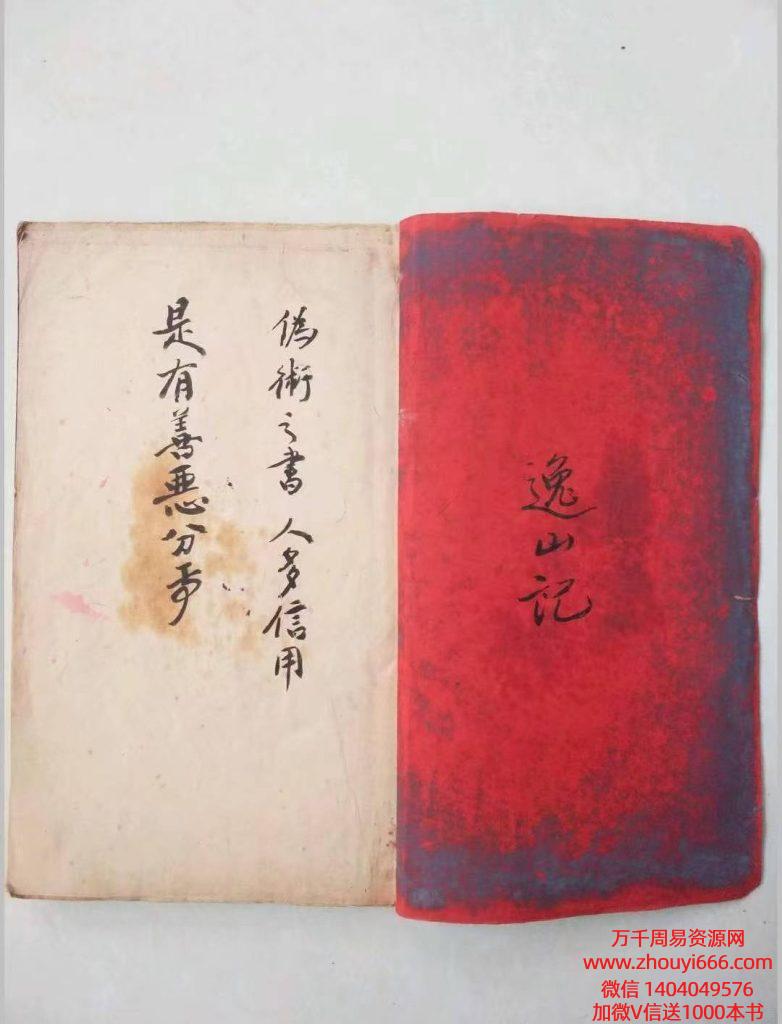 逸山记
偽術之書人多信用
是有善惡分爭
万千周易资源网
www.zhouyi666.com
微信 1404049576
加微V信送1000本书